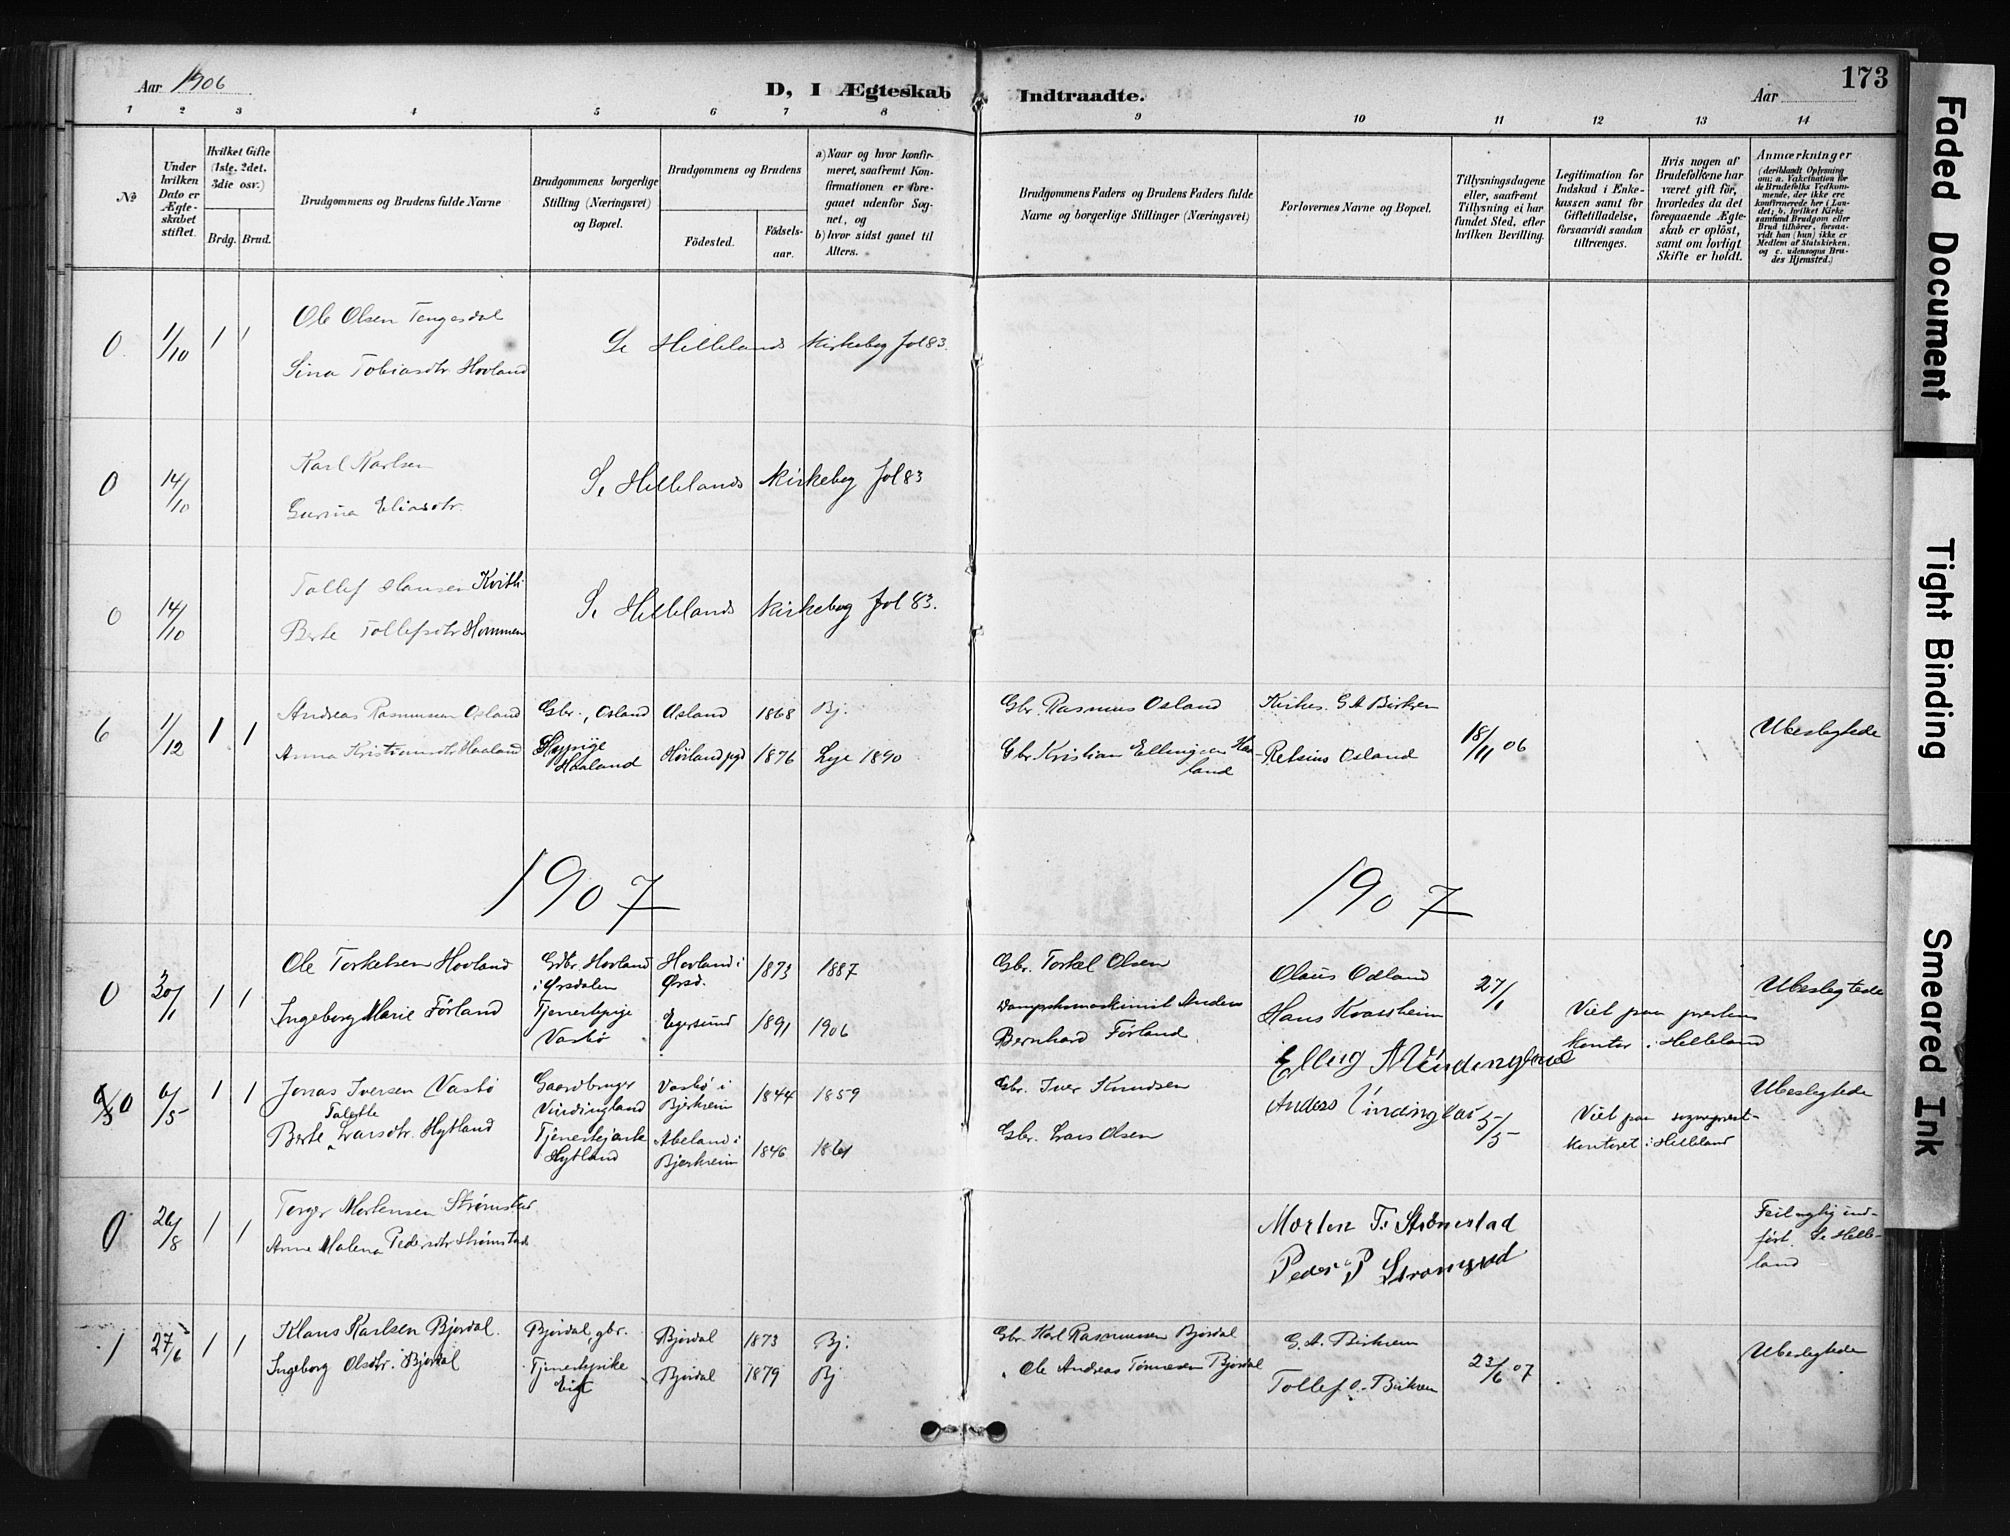 Aar 1906
D, I Ægteskab Indtraadte.
Aar
173
1 2 3 4 5 6 7 8 9 10 11 12 13 14
No
Under hvilken Dato er Ægteskabet stiftet.
Hvilket Gifte (1ste, 2det, 3die osv.)
Brdg. Brud.
Brudgommens og Brudens fulde Navne
Brudgommens borgerlige Stilling (Næringsvei) og Bopæl.
Brudgommens og Brudens
Fødested.
Fødselsaar.
a) Naar og hvor konfirmeret, saafremt Konfirmationen er foregaaet udenfor Sognet, og
b) hvor sidst gaaet til Alters.
Brudgommens Faders og Brudens Faders fulde Navne og borgerlige Stillinger (Næringsvei)
Forlovernes Navne og Bopæl.
Tillysningsdagene eller, saafremt Tillysning ei har fundet Sted, efter hvilken Bevilling.
Legitimation for Indskud i Enkekassen samt for Giftetilladelse, forsaavidt saadan tiltrænges.
Hvis nogen af Brudefolkene har været gift før, hvorledes da det foregaaende Ægteskab er opløst, samt om lovligt Skifte er holdt.
Anmærkninger (deriblandt Oplysning om: a. Vakcination for de Brudefolks Vedkommende, der ikke ere konfirmerede her i Landet; b. hvilket Kirkesamfund Brudgom eller Brud tilhører, forsaavidt han (hun) ikke er Medlem af Statskirken, og c. udensogns Brudes Hjemsted.)
0 1/10 1 1 Ole Olsen Tengesdal
Sina Tobiasdtr. Hovland
Se Hellelands Kirkebog fol 83.
0 14/10 Karl Karlsen
Gurina Eliasdtr.
S. Hellelands Kirkebog fol 83
0 14/10 Tollef Hansen Kvitli
Berte Tollefsdtr Hommen
S. Hellelands Kirkebog fol 83.
6 1/12 1 1 Andreas Rasmussen Osland Gbr., Osland Osland 1868 Bj. Gbr. Rasmus Osland Kirkes. G A Birkrem 18/11 06 Ubeslegtede
Anna Kristiansdtr Haaland Haaland Hørland pgd 1876 Lye 1890 Gbr Kristian Ellingsen Haaland Retsius Osland
1907 1907
0 30/1 1 1 Ole Torkelsen Hovland Gdbr. Hovland i Ørsdalen Hovland i Ørsd. 1873 1887 Gbr. Torkel Olsen Olaus Odland 27/1 Ubeslegtede
Ingeborg Marie Førland Tjenestepige Vasbø Egersund 1891 1906 Anders Bernhard Førland. Hans Kvassheim Viet paa prestens kontor i Helleland
0 6/5 1 1 Jonas Iversen Vasbø Gaardbruger Vindingland Vasbø i Bjerkreim 1844 1859 Gbr. Iver Knudsen Ellig Vindingland Ubeslegtede
Berte Talette Larsdtr. Hytland Hytland Abeland i Bjerkreim 1846 1861 Gbr. Lars Olsen Anders Vindingland 5/5 Viet paa sogneprestkontoret i Helleland
0 26/8 1 1 Torger Mortensen Strømstad Morten T. Strømstad Feilagtig indført. Se Helleland
Anne Malena Pedersdtr Strømstad Peder P Strømstad
1 27/6 1 1 Klaus Karlsen Bjordal. Bjordal, gbr. Bjordal 1873 Bj. Gbr. Karl Rasmussen Bjordal G. A. Birkrem 23/6 07 Ubeslegtede
Ingeborg Olsdtr. Bjordal Bjordal 1879 Bj " Ole Andreas Tønnesen Bjordal Tollef O. Birkrem
Faded Document
Tight Binding
Smeared Ink